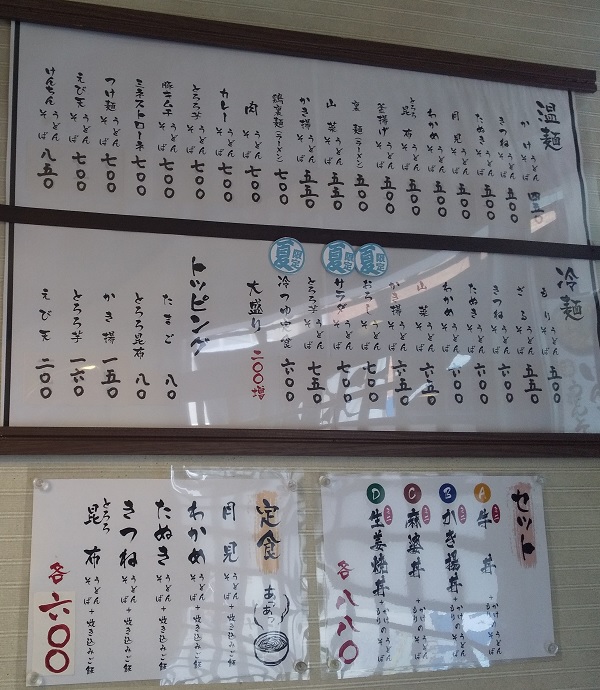 温麺
かけ うどん そば 四五〇
きつね うどん そば 五〇〇
たぬき うどん そば 五〇〇
月見 うどん そば 五〇〇
わかめ うどん そば 五〇〇
とろろ昆布 うどん そば 五〇〇
釜揚げ うどん そば 五五〇
素麺(ラーメン) 五〇〇
山菜 うどん そば 五五〇
かき揚 うどん そば 五五〇
鶏素麺(ラーメン) 七〇〇
肉 うどん そば 七〇〇
カレー うどん そば 七〇〇
とろろ芋 うどん そば 七〇〇
豚キムチ うどん そば 七〇〇
ミネストローネ 七〇〇
つけ麺 うどん そば 七〇〇
えび天 うどん そば 七〇〇
けんちん うどん そば 八五〇
冷麺
もり うどん そば 五〇〇
ざる うどん そば 五五〇
きつね うどん そば 六〇〇
たぬき うどん そば 六〇〇
わかめ うどん そば 六〇〇
山菜 うどん そば 六五〇
かき揚 うどん そば 六五〇
夏限定
おろし うどん そば 七〇〇
夏限定
サラダ うどん そば 七〇〇
とろろ芋 うどん そば 七五〇
夏限定
冷つゆ定食 六〇〇
大盛り 二〇〇増
トッピング
たまご 八〇
とろろ昆布 八〇
かき揚 一五〇
とろろ芋 一六〇
えび天 二〇〇
セット
A ミニ 牛丼
B ミニ かき揚丼 +かけのうどん +もりのそば
C ミニ 麻婆丼
D ミニ 生姜焼丼 +かけのうどん +もりのそば
各八八〇
定食
月見 うどん そば+炊き込みご飯
わかめ うどん そば+炊き込みご飯
たぬき うどん そば+炊き込みご飯
きつね うどん そば+炊き込みご飯
とろろ昆布 うどん そば+炊き込みご飯
各六〇〇